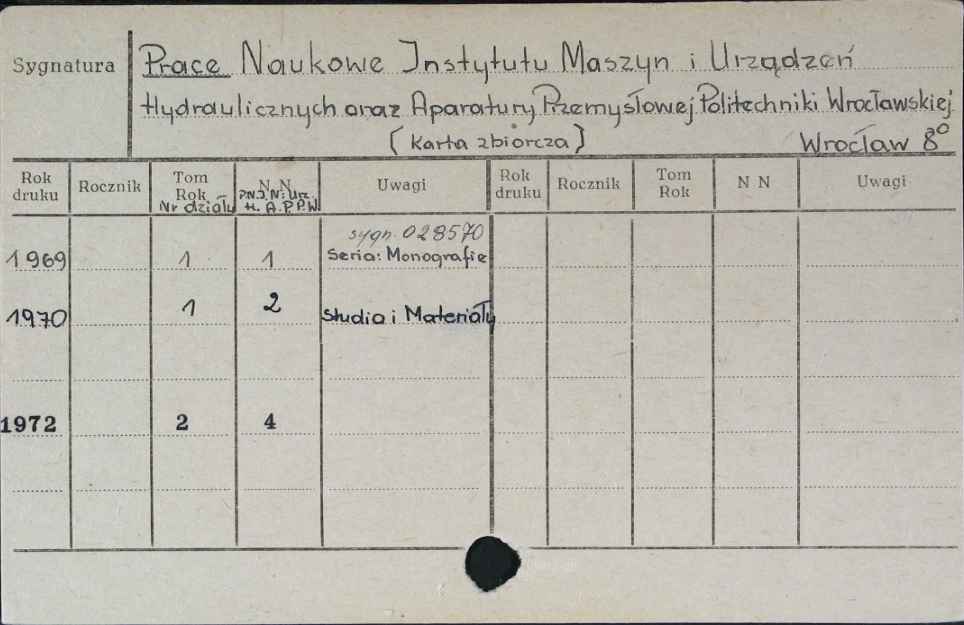 Sygnatura
Prace Naukowe Instytutu Maszyn i Urządzeń
Hydraulicznych oraz Aparatury Przemysłowej Politechniki Wrocławskiej
(Karta zbiorcza)
Wrocław 8°
Rok druku Rocznik Tom Rok Nr działu N N P.N.I. N: Urz. H. A. P. P. W Uwagi Rok druku Rocznik Tom Rok N N Uwagi
sygn. 028570
1969 1 1 Seria: Monografie
1970 1 2 Studia i Materiały
1972 2 4